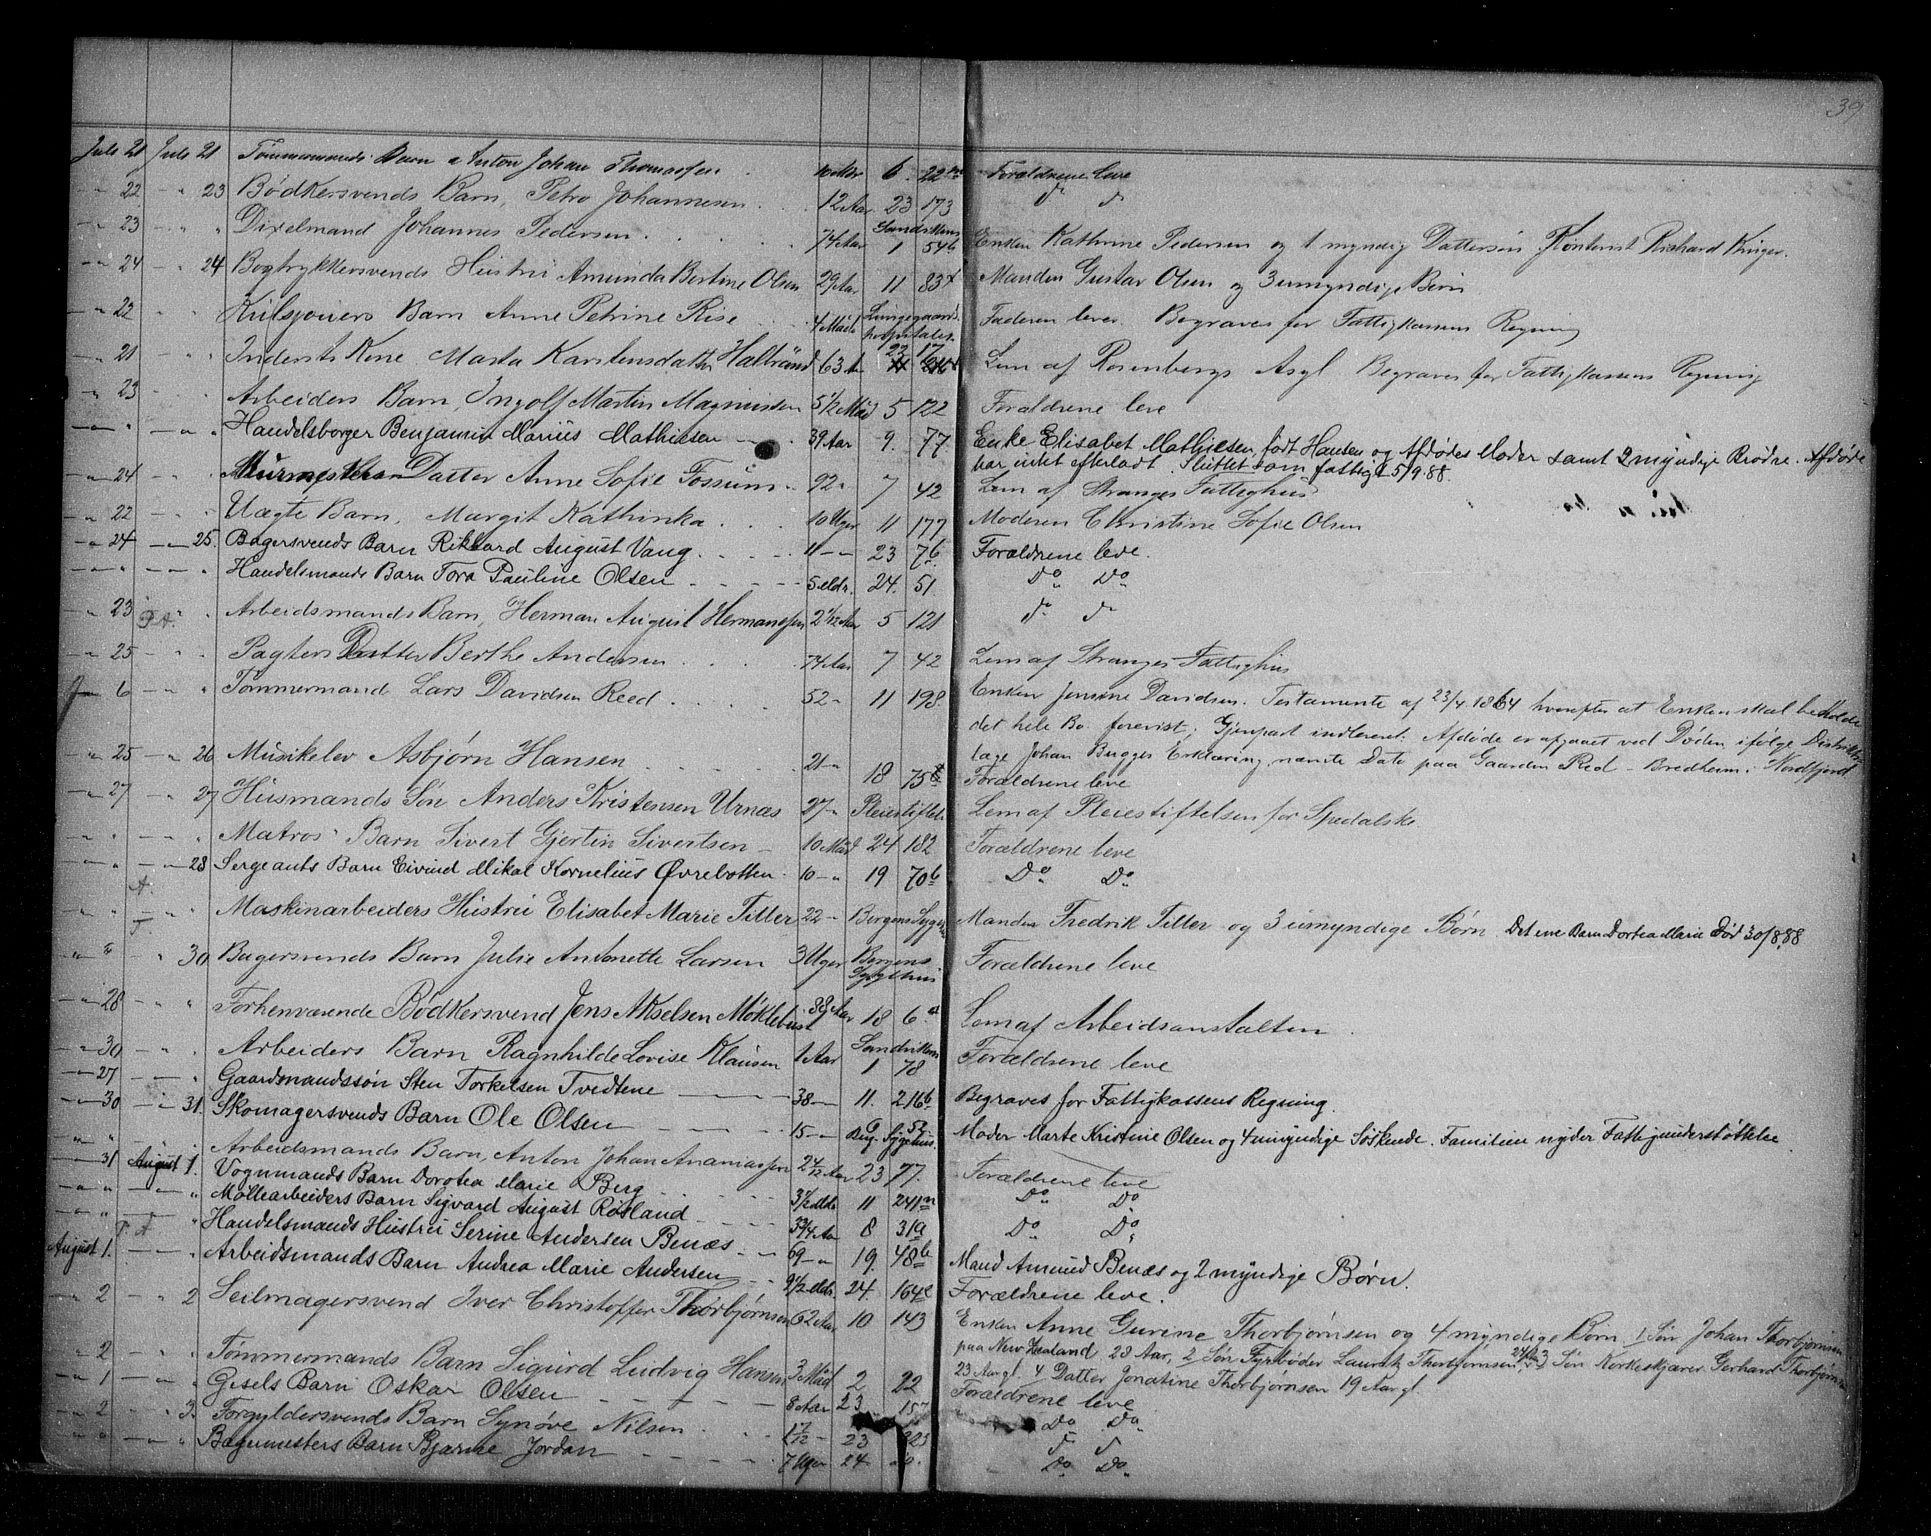 39
Juli 21 Juli 21 Tømmermands Barn Anton Johan Thomassen 6 22 Forældrene leve
" 22 " " 23 Bødkersvends Barn, Petra Johannesen 12 Aar 23 173 do do
" 23 " " " Dixelmand Johannes Pedersen 74 Aar Sandviken 1 54b Enken Kathrine Pedersen og 1 myndig Dattersøn, Kontorist Richard Krüger.
" 24 " " 24 Bogtrykkersvends Hustru Amunda Bertine Olsen 29 Aar 11 83 Manden Gustav Olsen og 3 umyndige Børn
" 22 " " " Barn Anne Petrine Rise 4 Mdr Lungegaards hospitalet Faderen lever. Begraves for Fattigkassens Regning
" 21 " " " Inderstk Kone Marta Karstensdatter 63 Aar 23 17 Lem af Rosenbergs Asyl Begraves for Fattigkassens Regning
" 23 " " " Arbeiders Barn, Ingolf Martin Magnussen 5 1/2 Mdr 5 122 Forældrene leve
" " " " " Handelsborger Benjamin Marius Mathiesen 39 Aar 9. 77 Enke Elisabet Mathiesen, født Hansen og Afdødes Moder samt 2 myndige Brødre. Afdøde
har intet efterladt. Sluttet som fattigt 5/9.88.
" 24 " " " Murmesters Datter Anne Sofie Fossum 92 " 7 42 Lem af Stranges Fattighus
" 22 " " " Uægte Barn, Margit Kathinka 10 Uger 11 177 Moderen Christine Sofie Olsen
" 24 " " 25. Bagersvends Barn Rikhard August Vang 11 " 23 76 Forældrene leve.
" " " " " Handelsmands Barn Tora Pauline Olsen 5 Mdr. 24. 51 Do Do
" 23 P.A. " " Arbeidsmands Barn, Herman August Hermansen 2 1/12 Aar 5 121 do do
" 25 " " " Pagters Datter Berthe Andersen 74 Aar 7 42 Lem af Stranges Fattighus
" 6 " " " Tømmermand Lars Davidsen Reed 52 " 11 198 Enken Jensine Davidsen. Testamente af 23/4 1864 hvorefter at Enken skal beholde
det hele Bo forevist; Gjenpart indleveret: Afdøde er afgaaet ved Døden ifølge Distrikts
læge Johan Bugges Erklæring nævnte Date paa Gaarden Red - Bredheim i Nordfjord
" 25 " " 26 Musikelev Asbjørn Hansen 21 " 18 75 Forældrene leve
" 27 " " 27 Husmands Søn Anders Kristensen Urnæs 27 " Pleiestiftels. Lem af Pleiestiftelsen for Spedalske
" " " " " Matros' Barn Sivert Gjertin Sivertsen 10 Mdr 24 182 Forældrene leve
" " " " 28 Sergeants Barn Eivind Mikal Kornelius Øvrebotten 10 " " 19 70b Do Do
" " A. T. " " Maskinarbeiders Hustru Elisabet Marie Titter 22 " Bergens Sygeh. Manden Fredrik Titter og 3 umyndige Børn. Det ene Barn Dortea Marie død 30/8.88
" " " " 30 Bagersvends Barn Julie Antonette Larsen 3 Uger Bergens Sygehus Forældrene leve
" 28 " " " Forhenværende Bødkersvend Jens Akselsen Møklebust 88 Aar 18 6 Lem af Arbeidsanstalten
" 30 " " " Arbeiders Barn Ragnhilde Lovise Klausen 1 Aar Sandviken 1 78 Forældrene leve
" 27 " " " Gaardmandssøn Sten Torkelsen Tvedtene 38 " 11. 216b Begraves for Fattigkassens Regning.
" 30 " " 31. Skomagersvends Barn Ole Olsen 15 " Brg. Sygehus. Moder Marte Kristine Olsen og 4 umyndige Søskende. Familien nyder Fattigunderstøttelse
" " " " " Arbeidsmands Barn, Anton Johan Ananiassen 2 4/12 Aar 23 77. Forældrene leve
" 31 August 1. Vognmands Barn Dorotea Marie Berg 3 1/2 Mdr 11 241 Do Do
" " " " " Møllearbeiders Barn Sigvard August Røsland 3 3/4 Aar 8 319 Do Do
" " T. A. " Handelsmands Hustru Serine Andersen Benæs 69 " 19. 48b Mand Amund Benæs og 2 myndige Børn.
August 1. " " " Arbeidsmands Barn Andrea Marie Andersen 9 1/2 Mdr. 24. 164e Forældrene leve.
" 2 " " 2 Seilmagersvend Iver Christoffer Thorbjørnsen 62 Aar 10 143 Enken Anne Gurine Thorbjørnsen og 4 myndige Børn 1 Søn Johan Thorbjørnsen
paa New Zealand 28 Aar, 2 Søn Fyrbøder Laurits Thorbjørnsen 24 Aar 3 Søn Korkeskjærer Gerhard Thorbjørnsen
23 Aar gl. 4 Datter Jonatine Thorbjørnsen 19 Aar gl.
" 2 " " " Tømmermands Barn Sigurd Ludvig Hansen 3 Mdr 2 22 Forældrene leve
" 1 " " " Gisels Barn Oskar Olsen 8 Aar 23 Do Do
" 2 " " 3. Forgyldersvends Barn Synøve Nilsen 1 7/12 " 23 223 do do
" " " " " Bagermesters Barn Bjarne Jordan 7 Uger 24 Do Do